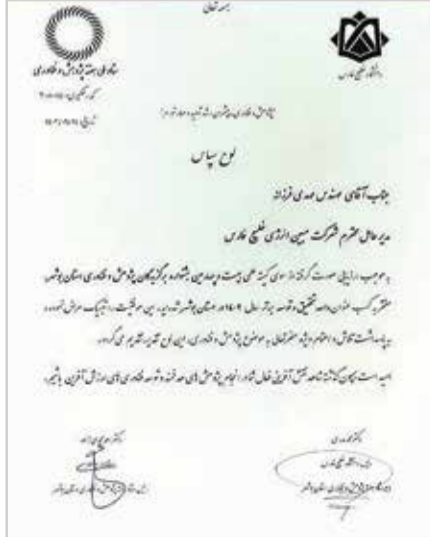 بسمه تعالی
دانشگاه خلیج فارس
ستاد ملی هفته پژوهش و فناوری
لوح سپاس
جناب آقای مهندس مهدی فرزانه
مدیرعامل محترم شرکت مبین انرژی خلیج فارس
به موجب ارزیابی صورت گرفته از سوی کمیته علمی بیست و چهارمین جشنواره برگزیدگان پژوهش و فناوری استان بوشهر،
مفتخر به کسب عنوان واحد تحقیق و توسعه برتر سال ۱۴۰۲ در استان بوشهر شده‌اید. این موفقیت را تبریک عرض نموده و
به پاسداشت تلاش و اهتمام ویژه حضرتعالی به موضوع پژوهش و فناوری، این لوح تقدیر تقدیم می‌گردد.
امید است همچون گذشته شاهد نقش آفرینی فعال شما در انجام پژوهش های هدفمند و توسعه فناوری های ارزش آفرین باشیم.
رئیس دانشگاه خلیج فارس